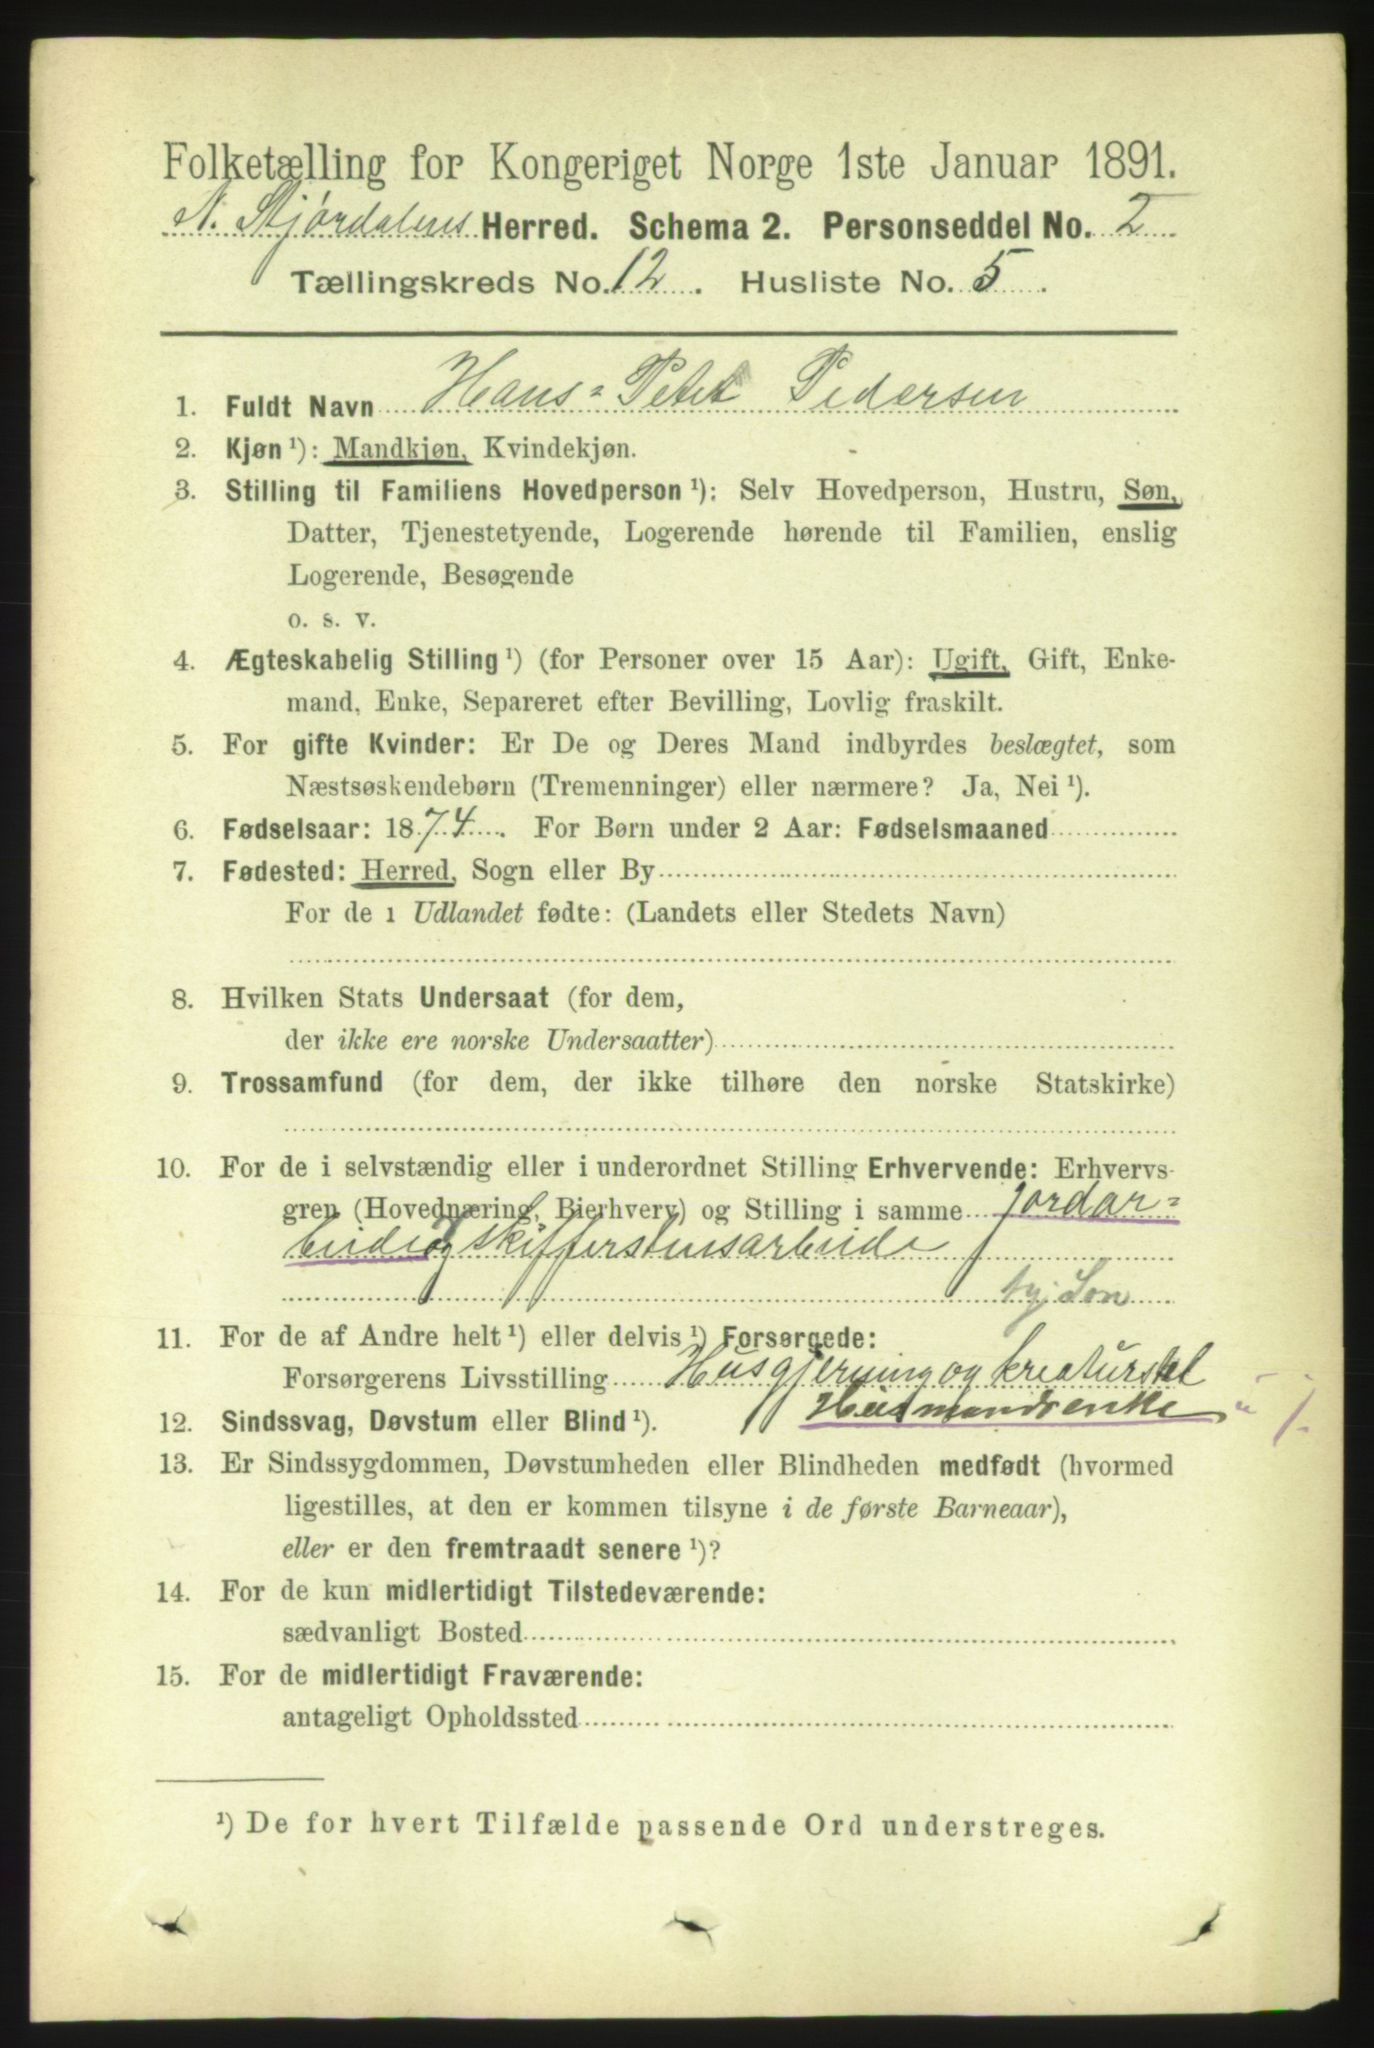 Folketælling for Kongeriget Norge 1ste Januar 1891.
N. Stjørdalens Herred. Schema 2. Personseddel No. 2
Tællingskreds No. 12. Husliste No. 5.
1. Fuldt Navn Hans= Peter Pedersen
2. Kjøn ¹): Mandkjøn, Kvindekjøn.
3. Stilling til Familiens Hovedperson ¹): Selv Hovedperson, Hustru, Søn,
Datter, Tjenestetyende, Logerende hørende til Familien, enslig
Logerende, Besøgende
o. s. v.
4. Ægteskabelig Stilling ¹) (for Personer over 15 Aar): Ugift, Gift, Enke-
mand, Enke, Separeret efter Bevilling, Lovlig fraskilt.
5. For gifte Kvinder: Er De og Deres Mand indbyrdes beslægtet, som
Næstsøskendebørn (Tremenninger) eller nærmere? Ja, Nei ¹).
6. Fødselsaar: 1874. For Børn under 2 Aar: Fødselsmaaned
7. Fødested: Herred, Sogn eller By
For de i Udlandet fødte: (Landets eller Stedets Navn)
8. Hvilken Stats Undersaat (for dem,
der ikke ere norske Undersaatter)
9. Trossamfund (for dem, der ikke tilhøre den norske Statskirke)
10. For de i selvstændig eller i underordnet Stilling Erhvervende: Erhvervs-
gren (Hovednæring, Bierhverv) og Stilling i samme Jordar=
beide og skifferstensarbeide
hj. Søn
11. For de af Andre helt ¹) eller delvis ¹) Forsørgede:
Forsørgerens Livsstilling Husgjerning og kreaturstel
Husmandsenke
12. Sindssvag, Døvstum eller Blind ¹).
13. Er Sindssygdommen, Døvstumheden eller Blindheden medfødt (hvormed
ligestilles, at den er kommen tilsyne i de første Barneaar),
eller er den fremtraadt senere ¹)?
14. For de kun midlertidigt Tilstedeværende:
sædvanligt Bosted
15. For de midlertidigt Fraværende:
antageligt Opholdssted
¹) De for hvert Tilfælde passende Ord understreges.